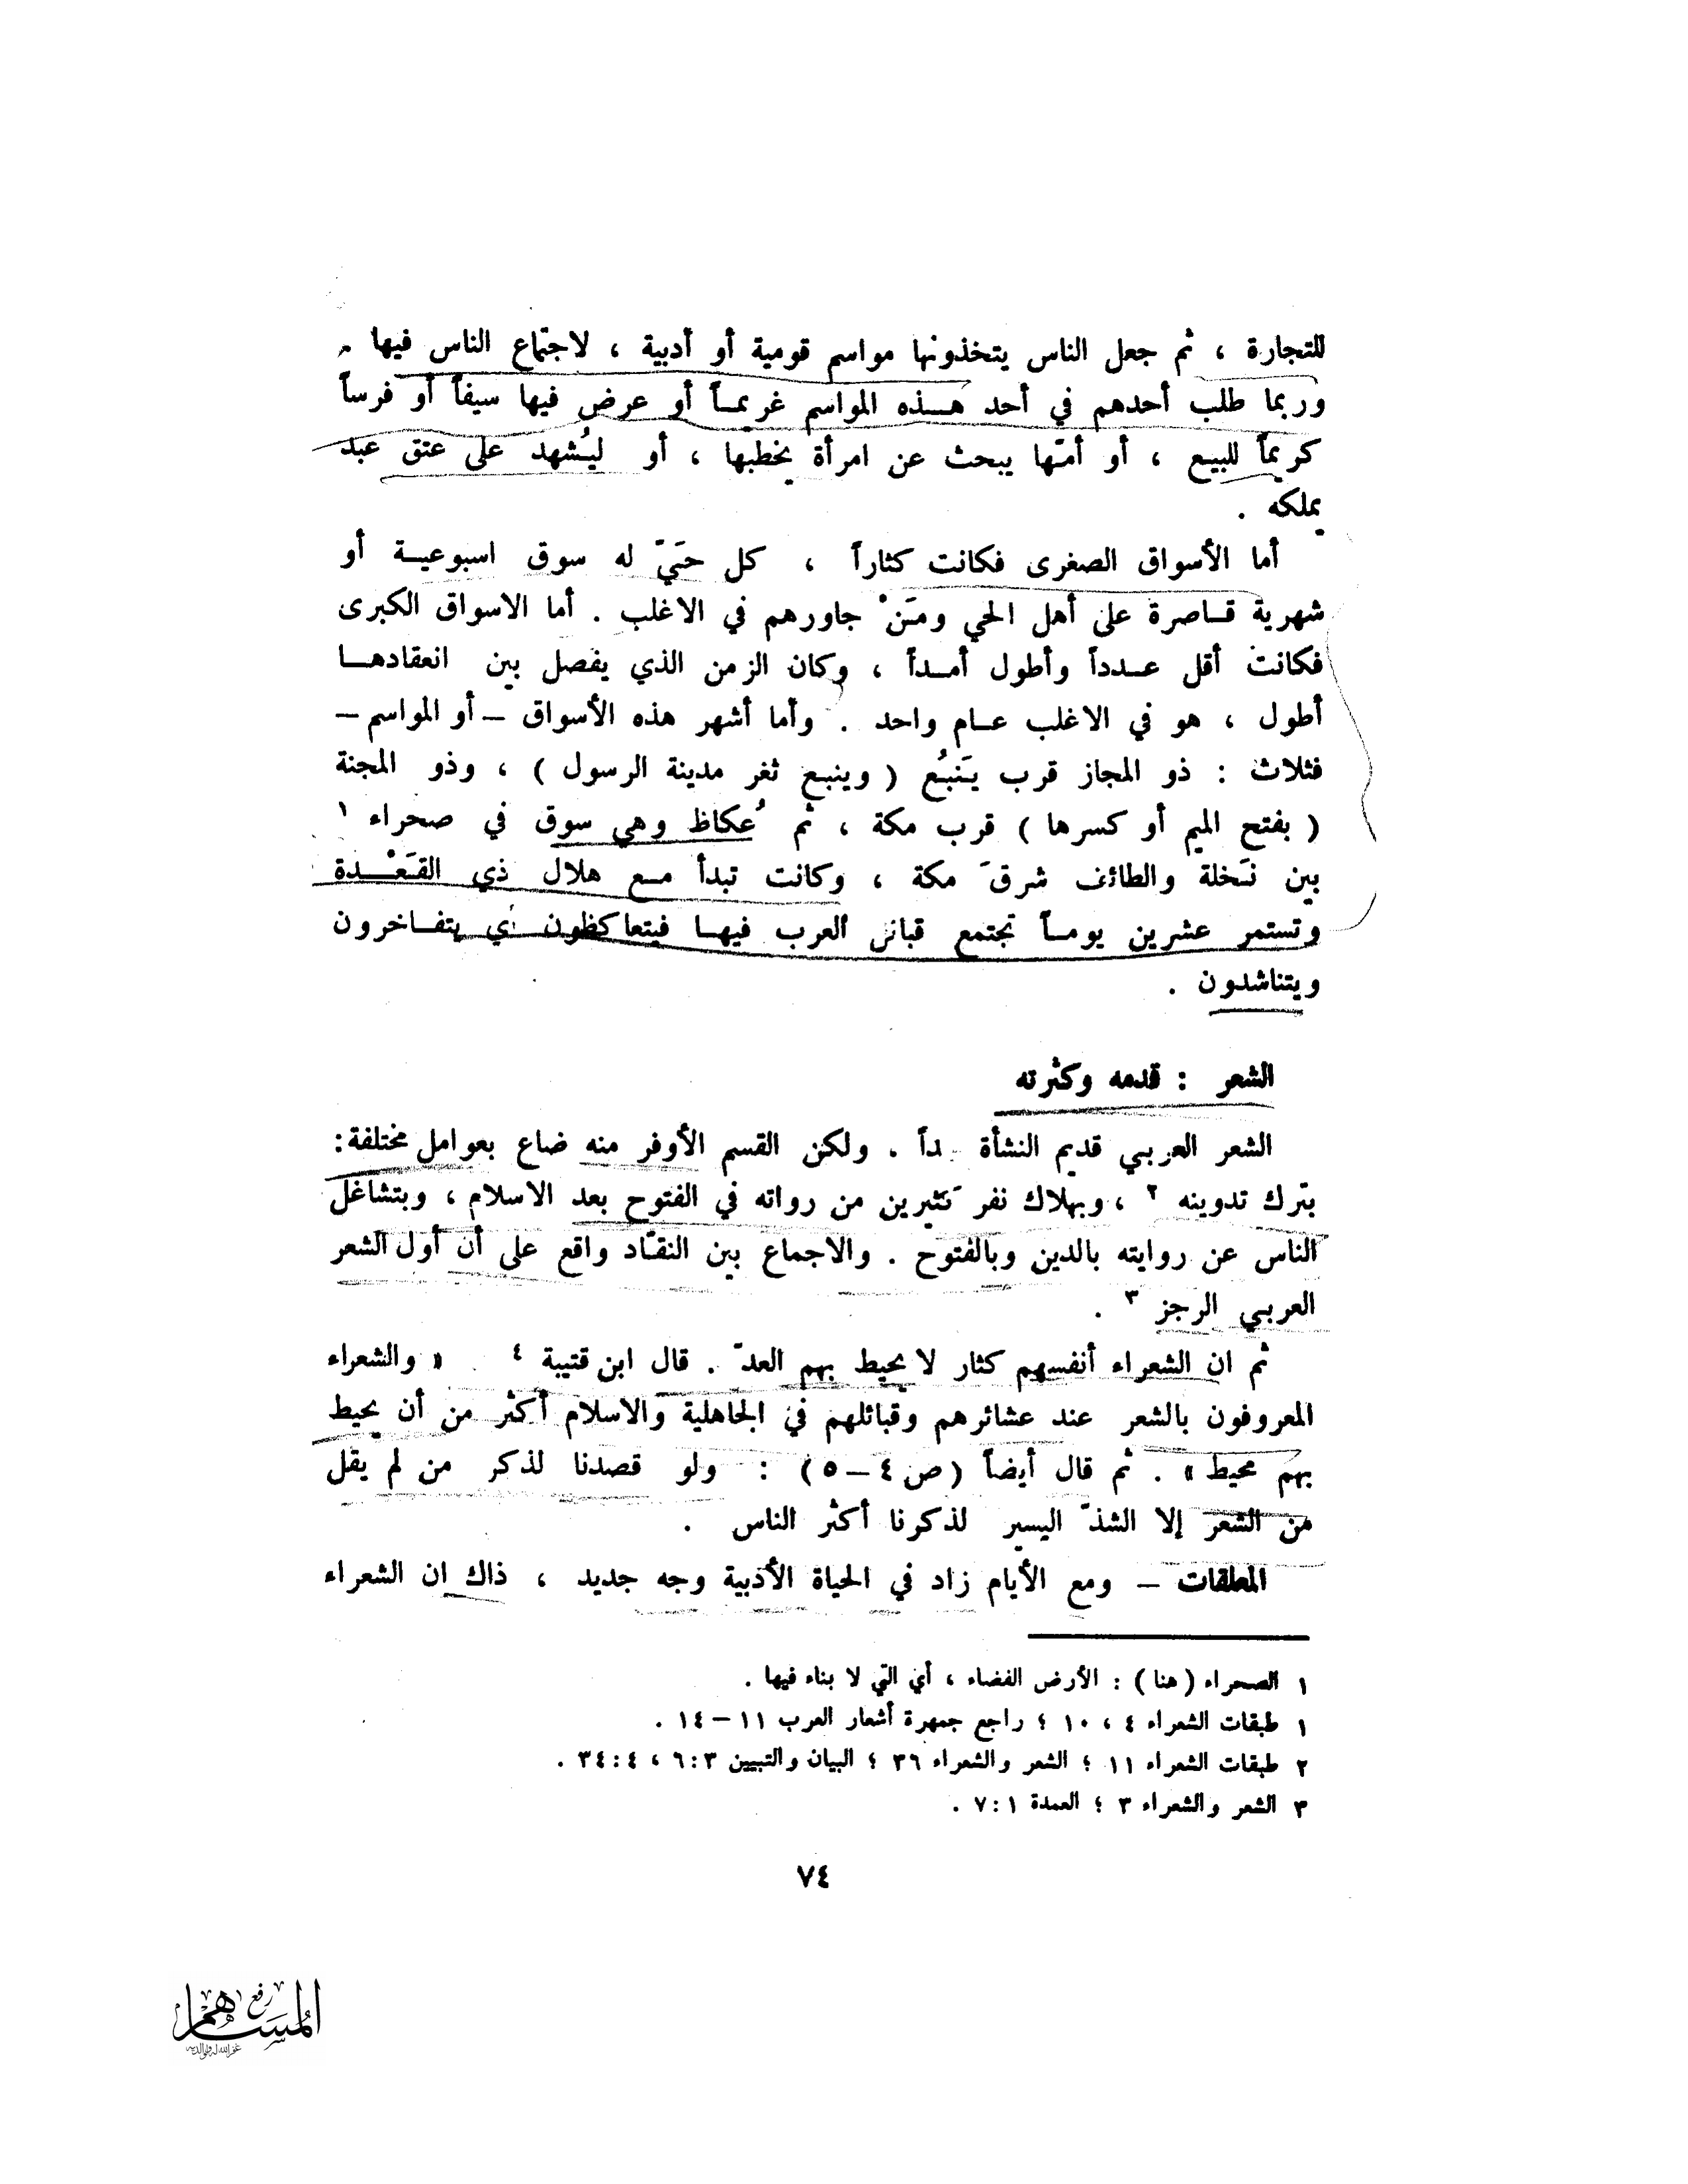 للتجارة ، ثم جعل الناس يتخذونها مواسم قومية أو أدبية ، لاجتماع الناس فيها .
وربما طلب أحدهم في أحد هـذه المواسم غريمـاً أو عرض فيها سيفاً أو فرساً
كريماً للبيع ، أو أمّها يبحث عن امرأة يخطبها ، أو ليُشهد على عتق عبد
يملكه .
أما الأسواق الصغرى فكانت كثاراً ، كل حَيّ له سوق اسبوعيـة أو
شهرية قـاصرة على أهل الحي ومَنْ جاورهم في الاغلب . أما الاسواق الكبرى
فكانت أقل عـدداً وأطول أمـداً ، وكان الزمن الذي يفصل بين انعقادهـا
أطول ، هو في الاغلب عـام واحد . وأما أشهر هذه الأسواق – أو المواسم –
فثلاث : ذو المجاز قرب يَنبُع ( وينبع ثغر مدينة الرسول ) ، وذو المجنة
( بفتح الميم أو كسرها ) قرب مكة ، ثم عُكاظ وهي سوق في صحراء ١
بين نَخلة والطائف شرقَ مكة ، وكانت تبدأ مـع هلال ذي القَعْـدة
وتستمر عشرين يومـاً تجتمع قبائل العرب فيهـا فيتعاكظون أي يتفـاخرون
ويتناشدون .
الشعر : قدمه وكثرته
الشعر العربي قديم النشأة داً . ولكن القسم الأوفر منه ضاع بعوامل مختلفة :
بترك تدوينه ٢ ، وبهلاك نفر كثيرين من رواته في الفتوح بعد الاسلام ، وبتشاغل
الناس عن روايته بالدين وبالفتوح . والاجماع بين النقّاد واقع على أن أول الشعر
العربي الرجز ٣ .
ثم ان الشعراء أنفسهم كثار لا يحيط بهم العدّ . قال ابن قتيبة ٤ « والشعراء
المعروفون بالشعر عند عشائرهم وقبائلهم في الجاهلية والاسلام أكثر من أن يحيط
بهم محيط » . ثم قال أيضاً (ص ٤ – ٥) : ولو قصدنا لذكر من لم يقل
من الشعر إلا الشذّ اليسير لذكرنا أكثر الناس .
المعلقات – ومع الأيام زاد في الحياة الأدبية وجه جديد ، ذاك ان الشعراء
١ الصحراء (هنا) : الأرض الفضاء ، أي التي لا بناء فيها .
١ طبقات الشعراء ٤ ، ١٠ ؛ راجع جمهرة أشعار العرب ١١ – ١٤ .
٢ طبقات الشعراء ١١ ؛ الشعر والشعراء ٣٦ ؛ البيان والتبيين ٣ : ٦ ، ٤ : ٣٤ .
٣ الشعر والشعراء ٣ ؛ العمدة ١ : ٧ .
٧٤
رفع
المساهم
غفر الله له ولوالديه